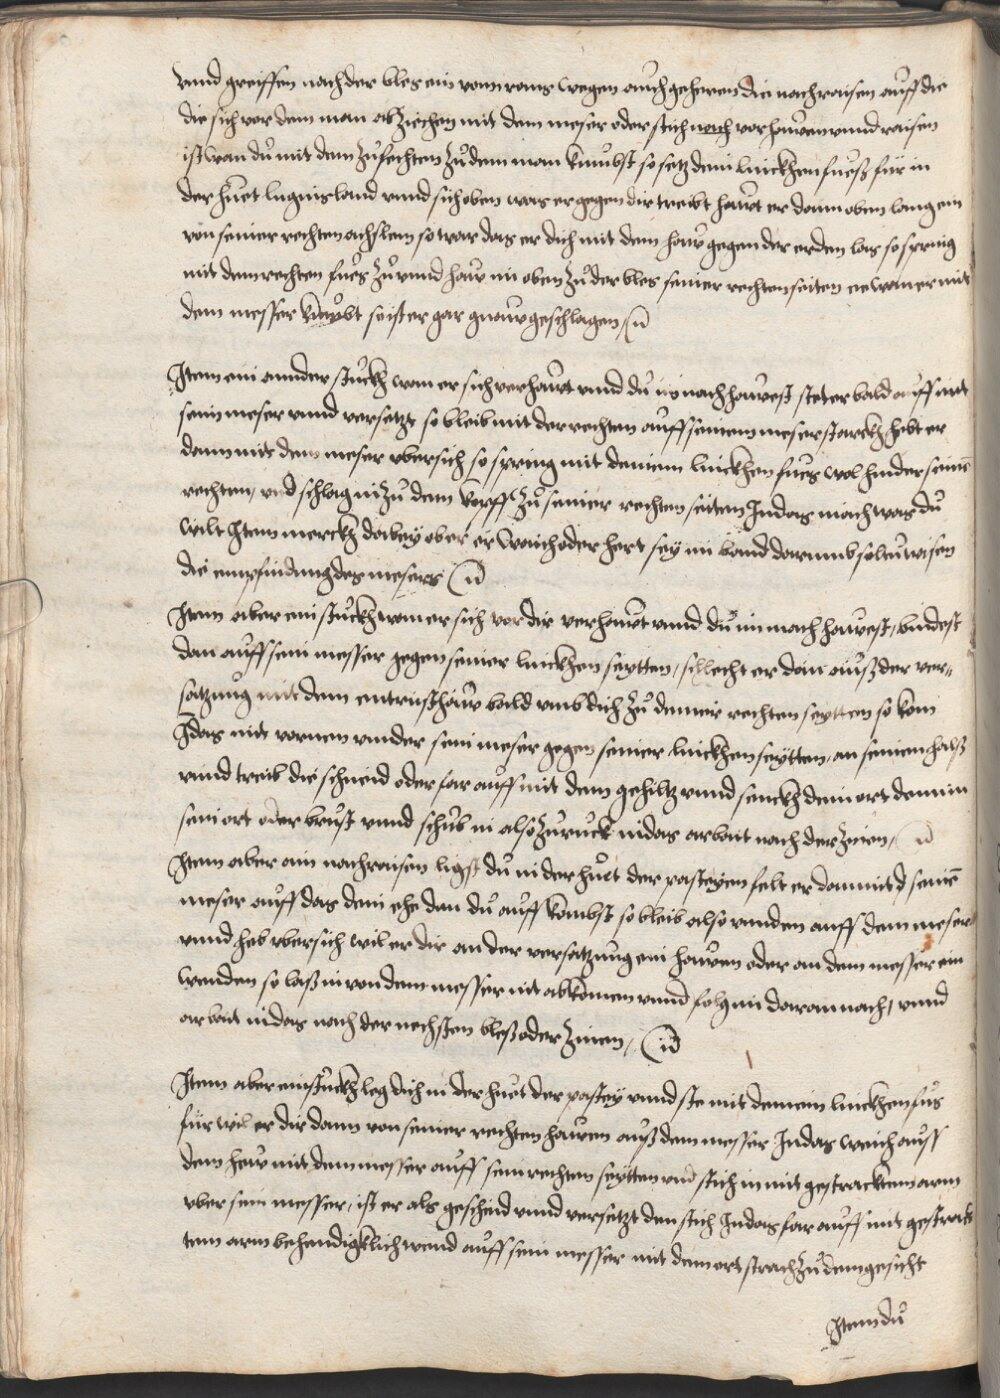 vnnd greiffen nach der bles ein vom rains wegen auch geheren die nachraisen auff die
die sich vor dem man abziechen mit dem meser oder stich nach vorhauwen vnnd raisen
ist wan du mit dem zufechten zu dem man kumbst so setz dein linckhen fueß für in
der huet luginsland vnnd sich eben was er gegen dir treibt haut er dann oben lang ein
von seiner rechten achslem so war das er dich mit dem hauw gegen der erden las so spring
mit dem rechten fues zu vnnd hauw in oben zu der bles seiner rechten seiten ee wan er mit
dem messer kumbt so ist er gar gnauw geschlagen
Item ein annder stuckh wan er sich verhaut vnnd du im nachhauwest stet er bald auff mit
seim meser vnnd versetzt so bleib mit der rechten auff seinem meser starckh hebt er
dann mit dem meser vbersich so spring mit deinem linckhen fues wol hinder seinen
rechten, vnd schlag in zu dem kopff zu seiner rechten seiten Indas mach was du
wilt Item merckh dabey ober er waich oder hert sey im band darumb soltu wisen
die empfindung des mesers
Item aber ein stuckh wan er sich vor dir verhaut vnnd du im nach hauwest, bindest
dan auff sein messer gegen seiner linckhen seytten, schlecht er dan auß der ver-
satzung mit dem entrusthauw bald vmb dich zu deiner rechten seytten so kom
Idas mit vornen vnnder sein meser gegen seiner linckhen seytten, an seinen halß
vnnd treib die schneid oder far auff mit dem gehiltz vnnd senckh dein ort dennin
sein ort oder brust vnnd schub in also zuruck indas arbait nach der zinen,
Item aber ain nachraisen ligst du in der huet der pasteyen felt er dann mit d seinem
meser auff das dein ehe dan du auff kombst so bleib also vnnden auff dem meser
vnnd heb vbersich wil er dir an der versatzung ein hauwen oder an dem messer ein
wenden so laß in von dem messer nit abkomen vnnd folg im daran nach, vnnd
arbait indas nach der nechsten bleß oder zinen,
Item aber ein stuckh leg dich in der huet der pastey vnnd ste mit deinem linckhen fus
für wil er dir dann von seiner rechten hauwen auß dem messer Indas weich auß
dem hauw mit dem messer auff sein rechten seytten vnd stich in mit gestracktem arm
vber sein messer, ist er als gescheid vnnd versetzt den stich Indas far auff mit gestrack
tem arm behendigklich wend auff sein messer mit dem ort strach zu dem gesicht
Item du